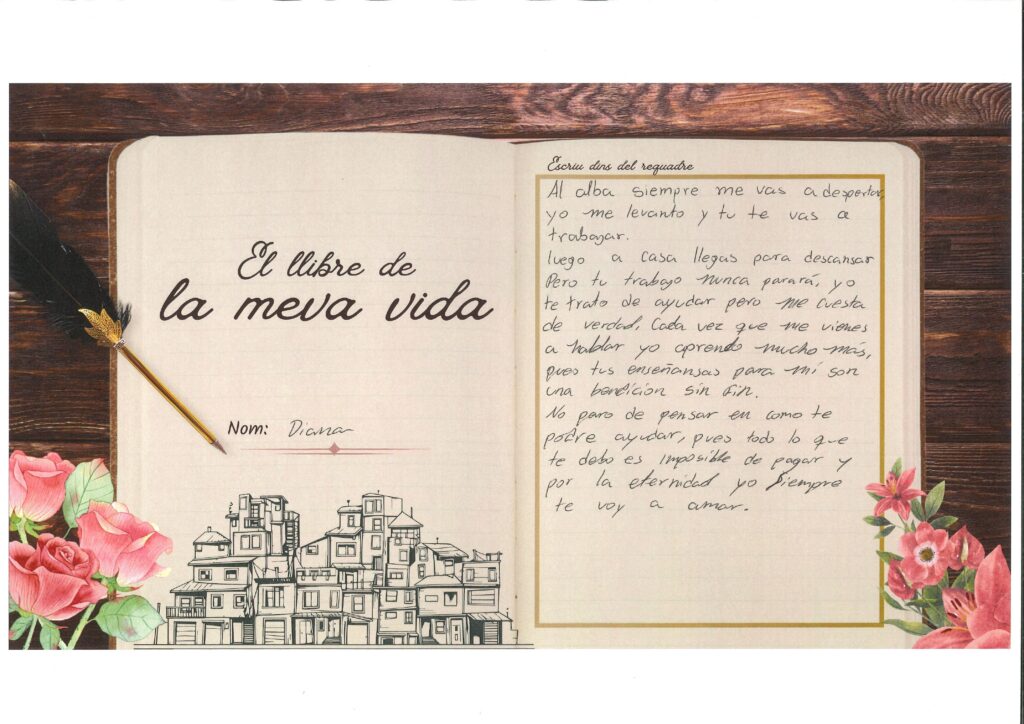 El llibre de
la meva vida
Nom: Diana
Escriu dins del requadre
Al alba siempre me vas a despertar,
yo me levanto y tu te vas a
trabajar.
luego a casa llegas para descansar
Pero tu trabajo nunca parará, yo
te trato de ayudar pero me cuesta
de verdad, Cada vez que me vienes
a hablar yo aprendo mucho más,
pues tus enseñansas para mí son
una bendicion sin fin.
No paro de pensar en como te
podre ayudar, pues todo lo que
te debo es imposible de pagar y
por la eternidad yo siempre
te voy a amar.